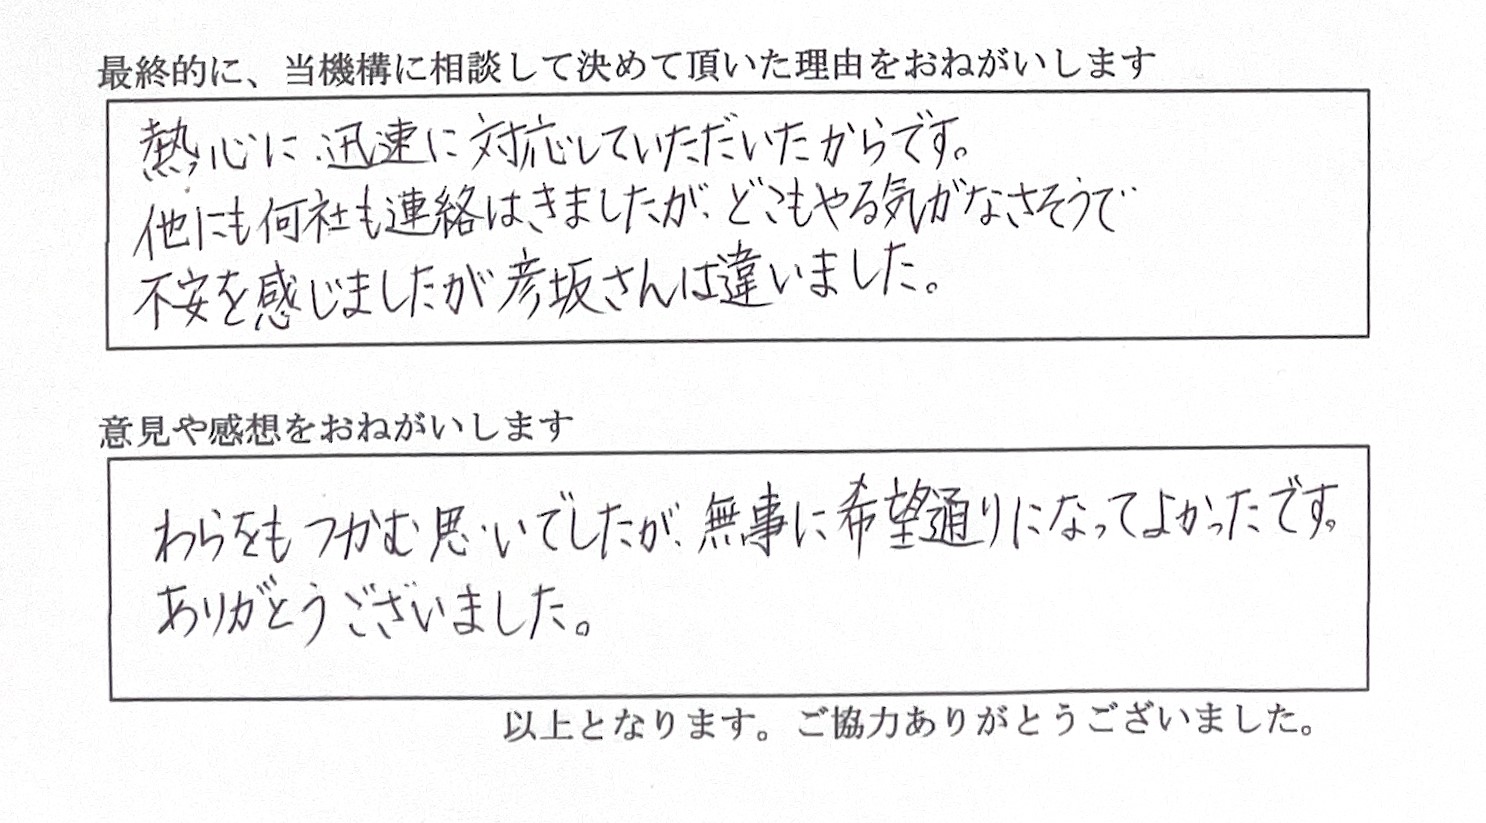 最終的に、当機構に相談して決めて頂いた理由をおねがいします
熱心に迅速に対応していただいたからです。
他にも何社も連絡はきましたが、どこもやる気がなさそうで
不安を感じましたが彦坂さんは違いました。
意見や感想をおねがいします
わらをもつかむ思いでしたが、無事に希望通りになってよかったです。
ありがとうございました。
以上となります。ご協力ありがとうございました。